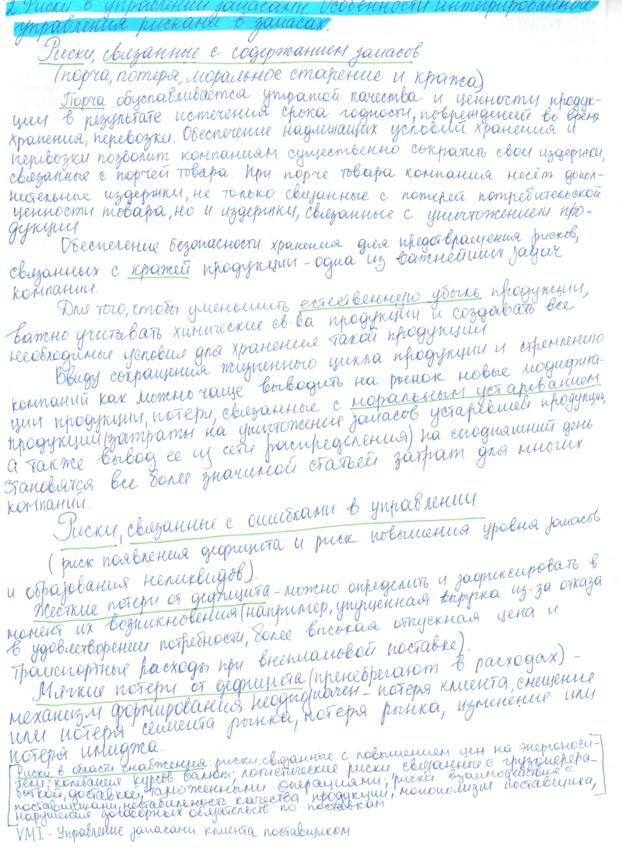 2. Риски в управлении запасами. Особенности интегрированного
управления рисками в запасах.
Риски, связанные с содержанием запасов
(порча, потеря, моральное старение и кража)
Порча обуславливается утратой качества и ценности продук-
ции в результате истечения срока годности, повреждений во время
хранения, перевозки. Обеспечение надлежащих условий хранения и
перевозки позволит компаниям существенно сократить свои издержки,
связанные с порчей товара. При порче товара компания несёт допол-
нительные издержки, не только связанные с потерей потребительской
ценности товара, но и издержки, связанные с уничтожением про-
дукции
Обеспечение безопасности хранения для предотвращения рисков,
связанных с кражей продукции - одна из важнейших задач
компании.
Для того, чтобы уменьшить естественную убыль продукции,
важно учитывать химические св-ва продукции и создавать все
необходимые условия для хранения такой продукции
Ввиду сокращения жизненного цикла продукции и стремлению
компаний как можно чаще выводить на рынок новые модифика-
ции продукции, потери, связанные с моральным устареванием
продукции (затраты на уничтожение запасов устаревшей продукции,
а также вывод ее из сети распределения) на сегодняшний день
становятся все более значимой статьей затрат для многих
компаний.
Риски, связанные с ошибками в управлении
(риск появления дефицита и риск повышения уровня запасов
и образования неликвидов).
Жесткие потери от дефицита - можно определить и зафиксировать в
момент их возникновения (например, упущенная выручка из-за отказа
в удовлетворении потребности, более высокая отпускная цена и
транспортные расходы при внеплановой поставке).
Мягкие потери от дефицита (пренебрегают в расходах) -
механизм формирования неоднозначен - потеря клиента, смещение
или потеря сегмента рынка, потеря рынка, изменение или
потеря имиджа.
Риски в области снабжения: риски, связанные с повышением цен на энергоноси-
тели; колебания курсов валют; логистические риски связанные с грузоперера-
боткой, доставкой, таможенными операциями; риски взаимодействия с
поставщиками, нестабильность качества продукции, монополизм поставщика,
нарушения договорных обязательств по поставкам
VMI - Управление запасами клиента поставщиком